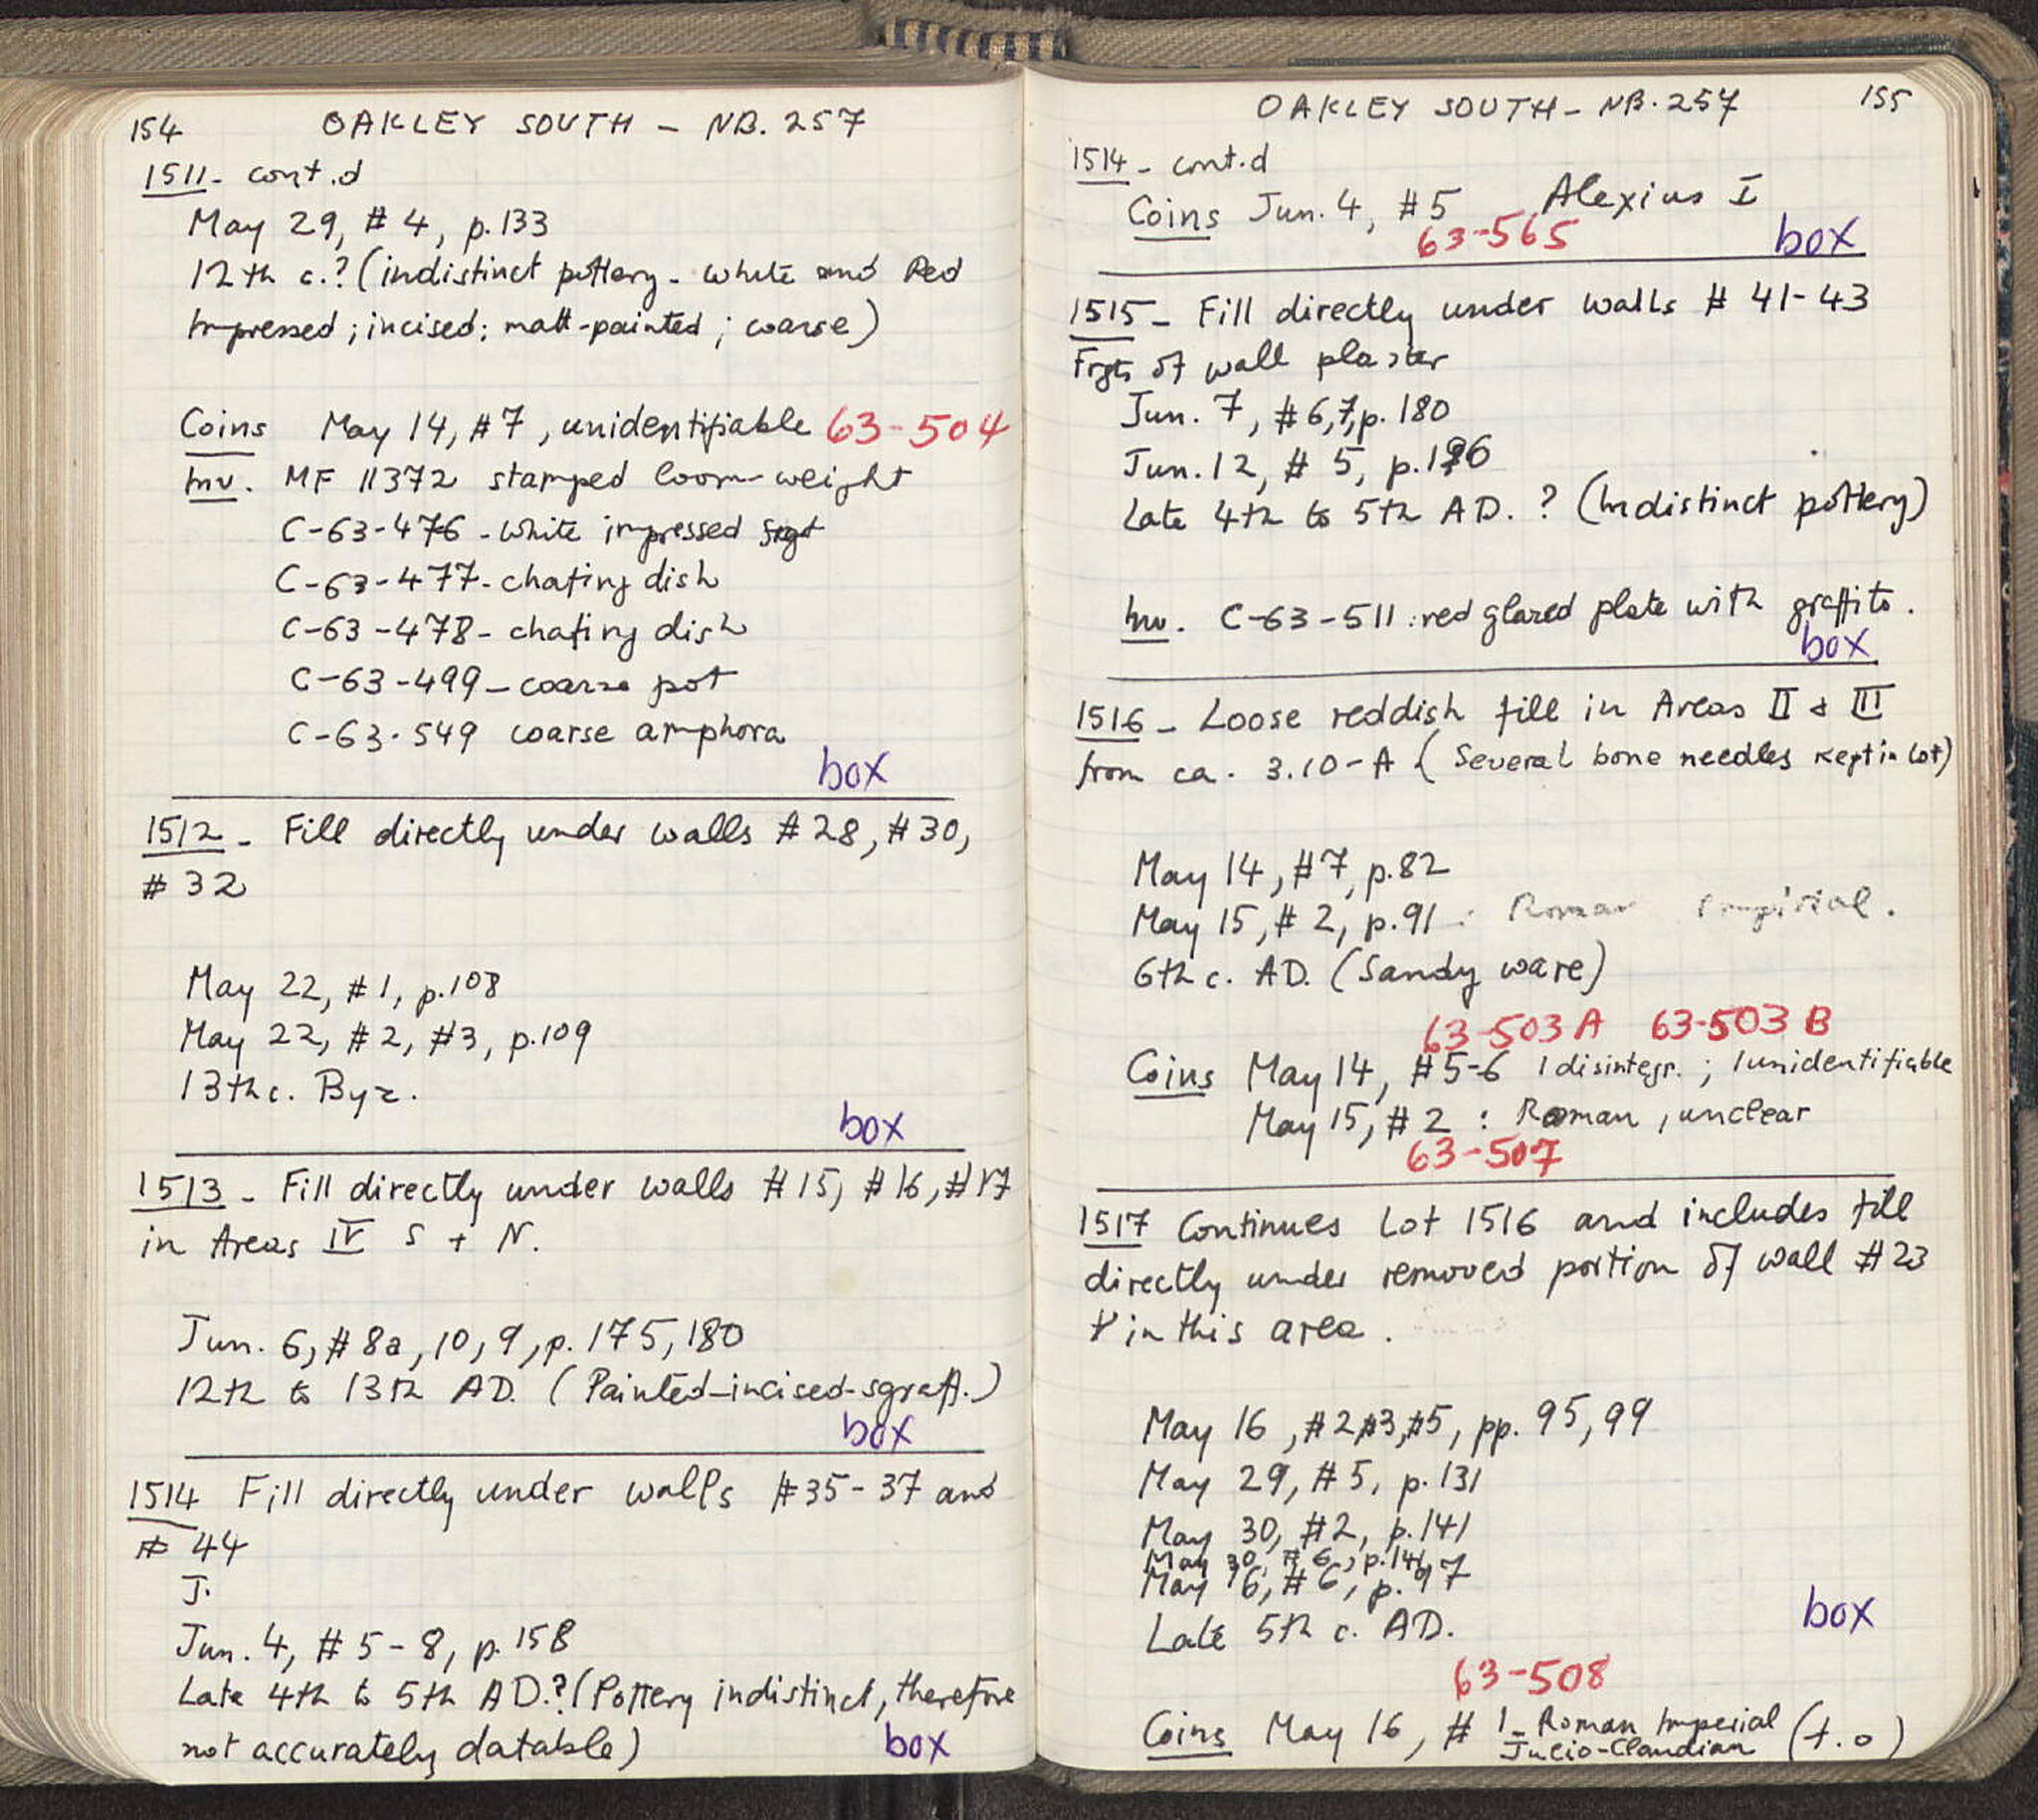 154 OAKLEY SOUTH - NB. 257
1511 - cont.d
May 29, # 4, p. 133
12th c.? (indistinct pottery - White and Red
Impressed; incised; matt-painted; coarse)
Coins May 14, #7, unidentifiable 63-504
Inv. MF 11372 stamped loom-weight
C-63-476 - White impressed frgt
C-63-477 - chafing dish
C-63-478 - chafing dish
C-63-499 - coarse pot
C-63-549 coarse amphora
box
1512 - Fill directly under walls #28, #30,
#32
May 22, #1, p.108
May 22, #2, #3, p.109
13th c. Byz.
box
1513 - Fill directly under walls #15, #16, #17
in Areas IV S + N.
Jun. 6, #8a, 10, 9, p. 175, 180
12th to 13th AD. (Painted-incised-sgraff.)
box
1514 Fill directly under walls #35-37 and
# 44
J.
Jun. 4, #5-8, p. 158
Late 4th to 5th AD.? (Pottery indistinct, therefore
not accurately datable)
box
OAKLEY SOUTH - NB. 257 155
1514 - cont.d
Coins Jun. 4, #5 Alexius I
63-565
box
1515 - Fill directly under walls # 41-43
Frgts of wall plaster
Jun. 7, #6,7, p. 180
Jun. 12, # 5, p.
Late 4th to 5th AD. ? (Indistinct pottery)
Inv. C-63-511 : red glazed plate with graffito.
box
1516 - Loose reddish fill in Areas II & III
from ca. 3.10-A (Several bone needles kept in lot)
May 14, #7, p.82
May 15, # 2, p.91 : Roman Imperial.
6th c. AD. (Sandy ware)
63-503 A 63-503 B
Coins May 14, #5-6 1 disintegr. ; 1 unidentifiable
May 15, # 2 : Roman, unclear
63-507
1517 Continues Lot 1516 and includes fill
directly under removed portion of wall #23
in this area.
May 16, #2 #3, #5, pp. 95, 99
May 29, #5, p. 131
May 30, #2, p. 141
May 30, # 6, p. 141
May 16, #6, p. 97
Late 5th c. AD.
box
63-508
Coins May 16, # 1 - Roman Imperial (t.o)
Julio-Claudian